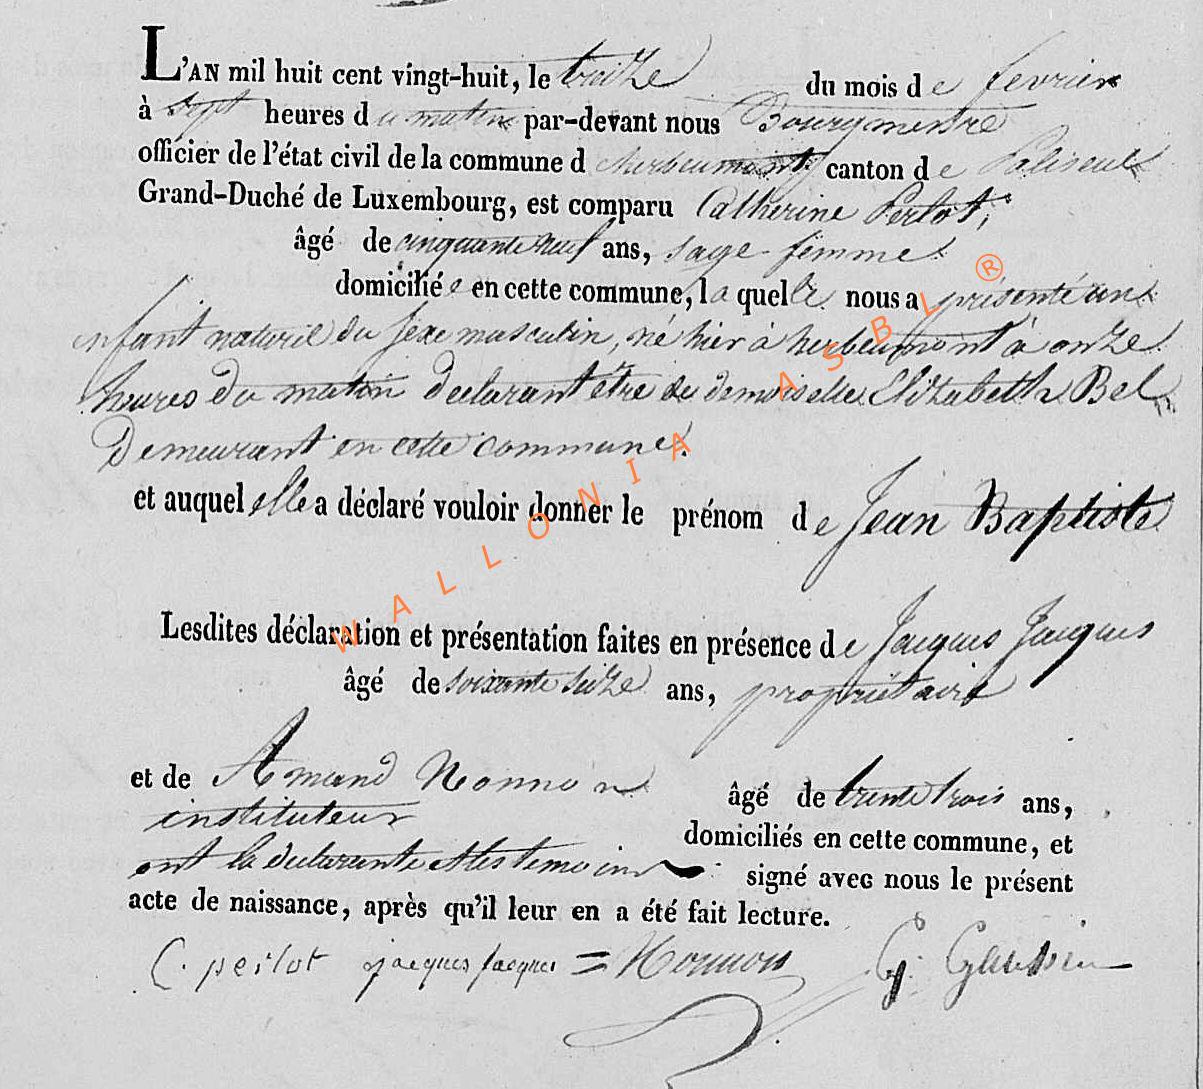 L'AN mil huit cent vingt-huit, le treize du mois de fevrier
à sept heures du matin par-devant nous Bourgmestre
officier de l'état civil de la commune d herbeumont canton de Paliseul
Grand-Duché de Luxembourg, est comparu Catherine Perlot,
âgé de cinquante neuf ans, sage-femme
domiciliée en cette commune, laquelle nous a présenté un
enfant naturel du sexe masculin, né hier à herbeumont à onze
heures du matin declarant être de demoiselle Elizabeth Bel
Demeurant en cette commune.
et auquel elle a déclaré vouloir donner le prénom de Jean Baptiste
Lesdites déclaration et présentation faites en présence de Jacques Jacques
âgé de soixante seize ans, propriétaire
et de Amand Nonnon âgé de trente trois ans,
instituteur domiciliés en cette commune, et
ont la declarante et les temoins signé avec nous le présent
acte de naissance, après qu'il leur en a été fait lecture.
C. perlot jacques jacques = Nonnon G.
WALLONIA ASBL ®